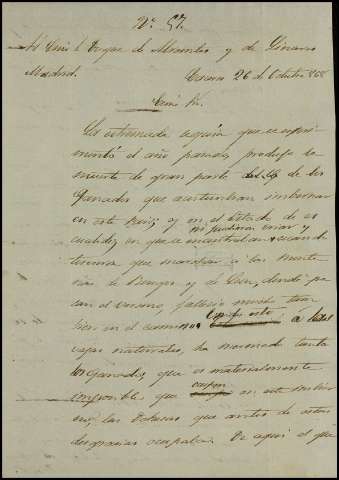 Nº 57.
Al Exmo. S. Duque de Abrantes y de Linares
Madrid.
26 de Octubre 868
Exmo. Sr.
La estremada sequía que se esperi-
mentó el año pasado, produjo la
muerte de gran parte de los
Ganados que acostumbran invernar
en este Pais, y en el estado de es-
ni pudieron criar y
en que se encontraban cuando
tuvieron que marchar a las monta-
ñas de Burgos y de Leon, donde pa-
san el verano, falleció mucho tam-
bien en el camino, á tales
bajas naturales, ha mermado tanto
los Ganados, que es materialmente
imposible que en este
las Dehesas que antes de estas
desgracias ocupaba. De aqui el que